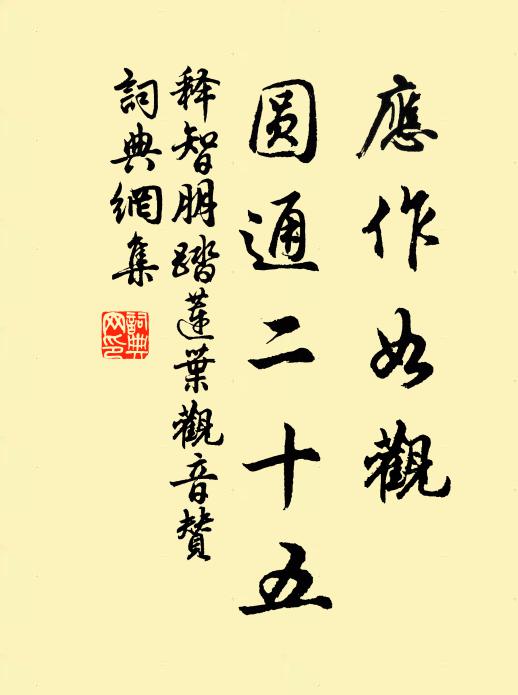 應作如觀
圆通二十五
释智朋踏蓮葉觀音贊
詞典網集
詞典网印